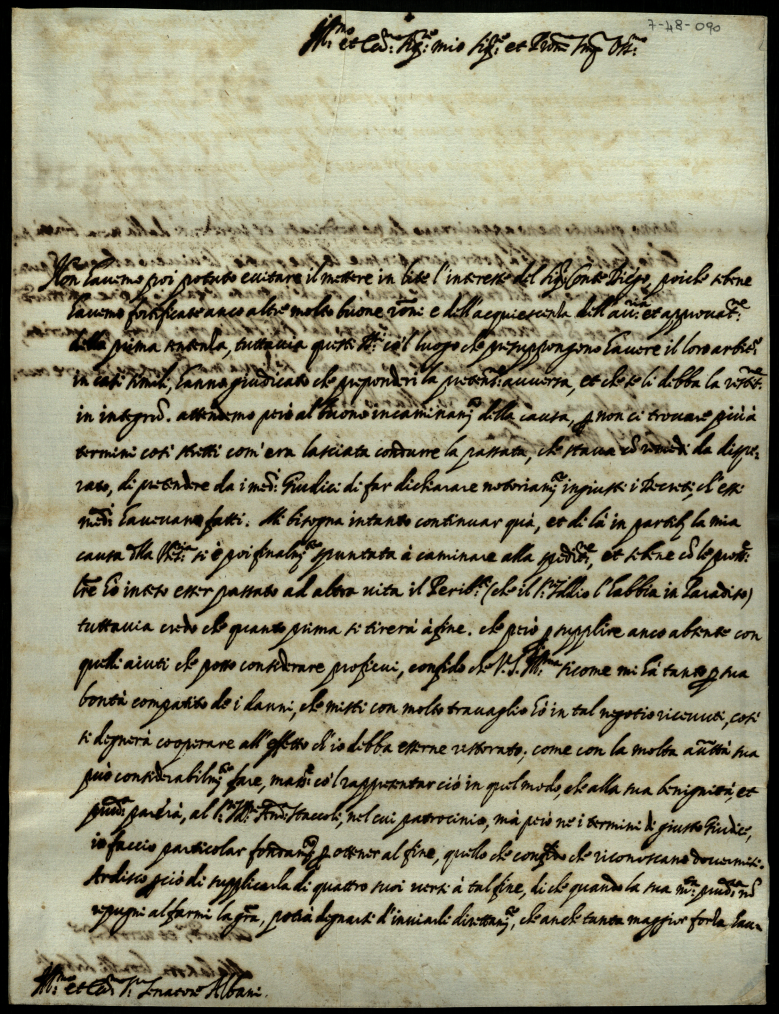 7-48-090
Ill.mo et Ecc.mo Sig.re mio Sig.re et Pron.e Sing.r Oss.mo
Non havemo poi potuto evitare il mettere in lite l'interesse del Sig.r Conte Diego, poiche se bene
havemo fortificate anco altre molto buone rag.ni e dell'acquiescenza dell'avv.o et approvat.e
della prima sentenza, tuttavia questi SS.ri co'l luogo che presuppongono havere il loro arbitrio
in casi simili, hanno giudicato che preponderi la pretens.e avversa, et che se li debba la restit.e
in integrum. attendemo però al buono incaminam.to della causa, p non ci trovare più à
termini così stretti com'era lasciata condurre la passata, che stava co' rimedi da dispe-
rato, di pretendere da i med.i Giudici di far dichiarare notoriam.te ingiusti i Decreti, ch'essi
med.i havevano fatti. Mi bisogna intanto continuar quà, et di là in partic.re la mia
causa della si è poi finalm.te spuntata à caminare alla spedit.e, et se bene co' le pros.me
l're hò inteso esser passato ad altra vita il (che il S.r Iddio l'habbia in Paradiso)
tuttavia credo che quanto prima si tirerà à fine. che però p supplire anco absente con
quelli aiuti che posso considerare proficui, confido che V.S. Ill.ma sicome mi hà tanto p sua
bontà compatito de i danni, che misti con molto travaglio hò in tal negotio ricevuti, così
si degnerà cooperare all'effetto ch'io debba esserne ristorato; come con la molta autt.à sua
può considerabilm.te fare, mass.e co'l rappresentar ciò in quel modo, che alla sua benignità, et
prud.a parerà, al S.r Staccoli, nel cui patrocinio, mà però ne i termini di giusto Giudice,
io faccio particolar fondam.to p ottener al fine, quello che confido che riconoscano dovermisi.
Ardisco p ciò di supplicarla di quattro suoi versi à tal fine, di che quando la sua m.ta prud.a no'
repugni al farmi la gra', potrà degnarsi d'inviarli direttam.te, che anche tanta maggior forza hau-
Ill.mo et Ecc.mo S.r Senatore Albani.